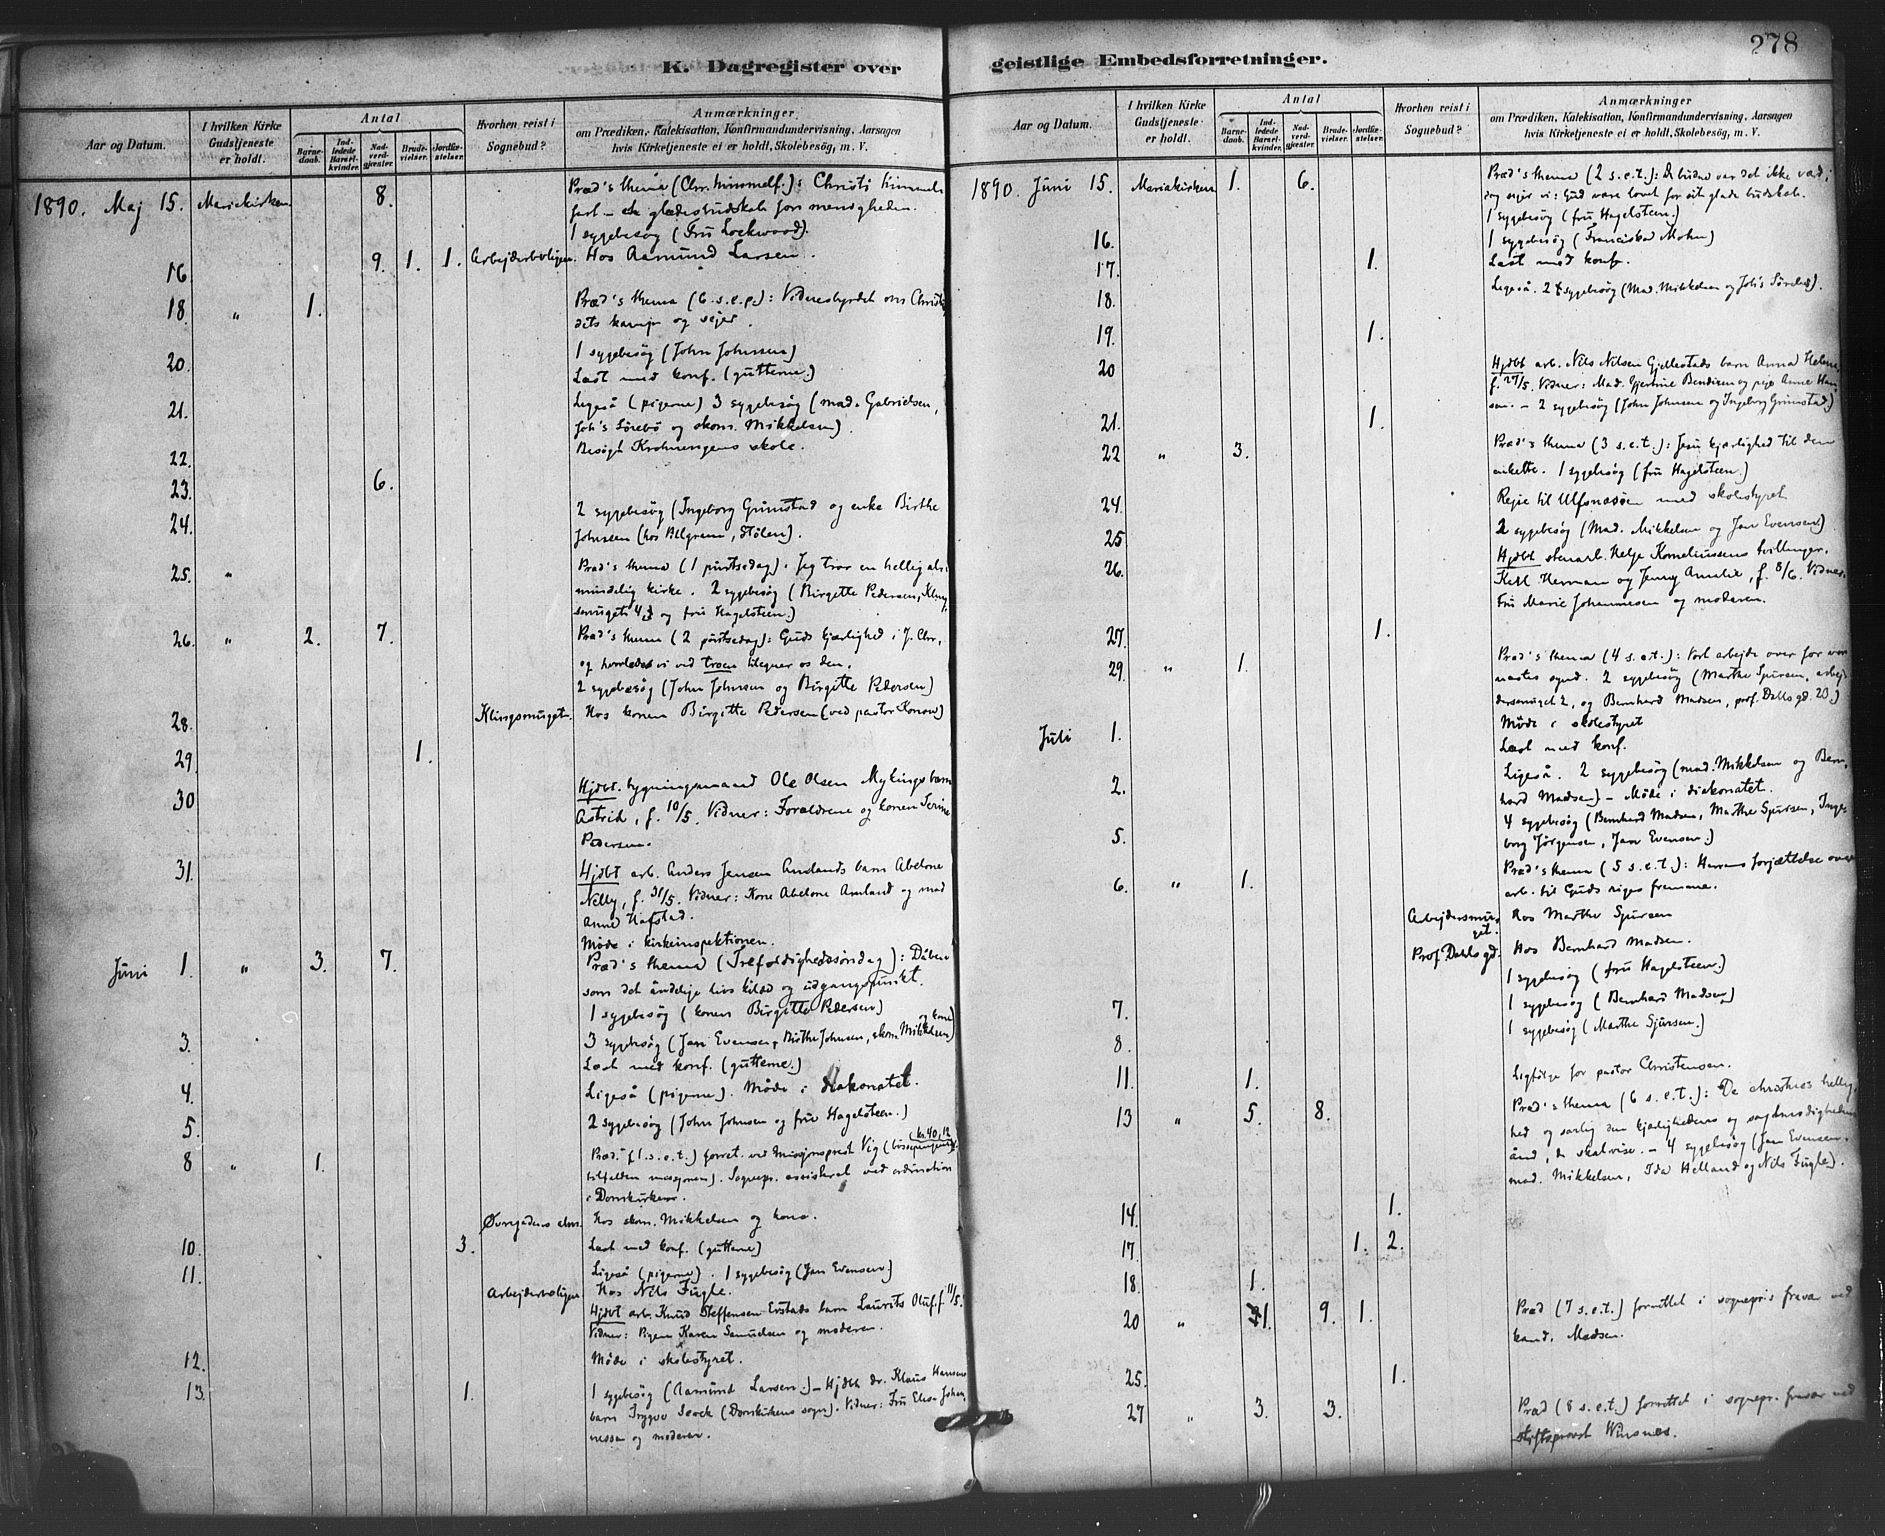 278
K. Dagregister over
geistlige Embedsforretninger.
Aar og Datum.
I hvilken Kirke
Gudstjeneste
er holdt.
Antal
Barne-
daab.
Ind-
ledede
Barsel-
kvinder.
Nad-
verd-
gjæster.
Brude-
vielser.
Jordfæ-
stelser.
Hvorhen reist i
Sognebud?
Anmærkninger
om Prædiken, Katekisation, Konfirmandundervisning, Aarsagen
hvis Kirketjeneste ei er holdt, Skolebesög, m. V.
1890. Maj 15. Mariekirken. 8. Præd's thema (Chr. himmelf.): Christi himmel-
fart – et glædesbudskab for menigheden.
1 sygebesøg (Fru Lockwood).
16. 9. 1. 1. Arbejderboligen. Hos Aamund Larsen.
18. " 1. Præd's thema (6. s. e. p.): Vidnesbyrdet om Christi,
dets kamp og sejer.
20. 1 sygebesøg (John Johnsen)
Læst med konf. (gutterne)
21. Ligeså (pigerne) 3 sygebesøg (mad. Gabrielsen,
Joh's Sørebø og skom. Mikkelsen).
22. Besøgt Krohnengens skole.
23. 6.
24. 2 sygebesøg (Ingeborg Grimstad og enke Birthe
Johnsen (hos Pllgram, Stölen).
25. " Præd's thema (1 pintsedag). Jeg tror en hellig al-
mindelig kirke. 2 sygebesøg (Birgitte Pedersen, Kling-
smuget 43 og fru Hagelsteen)
26. " 2. 7. Præd's thema (2 pintsedag): Guds kjærlighed i J. Chr.,
og hvorledes vi ved troen tilegner os den.
2 sygebesøg (John Johnsen og Birgitte Pedersen)
28. Klingsmuget. Hos konen Birgitte Pedersen (ved pastor Konow)
29. 1.
30 Hjdbt. bygningsmand Ole Olsen Myklings barn
Astrid, f. 10/5. Vidner: Forældrene og konen Serine
Pedersen.
31. Hjdbt arb. Anders Jensen Amlands barn Abelone
Nelly, f. 31/5. Vidner: Kone Abelone Amland og mad
Anne Hafstad.
Møde i kirkeinspektionen.
Juni 1. " 3. 7. Præd's thema (Trefoldighedssöndag): Dåben
som det åndelige livs kilde og udgangspunkt.
1 sygebesøg (konen Birgitte Pedersen)
3. 3 sygebesøg (Jan Evensen, Birthe Johnsen, skom. Mikkelsen og kone)
Læst med konf. (gutterne.)
4. Ligeså (pigerne). Møde i diakonatet.
5. 2 sygebesøg (John Johnsen og fru Hagelsteen.)
8 " 1. Præd. (1. s. e. t.) forret. ved missjonsprest Vig (bössepengene kr. 40,12
tilfalden missjonen). Sognepr. assisteret ved ordination
i Domkirken.
Øvregadens alm. Hos skom. Mikkelsen og kone.
10. 3. Læst med konf. (gutterne)
11. Ligeså (pigerne). 1 sygebesøg (Jan Evensen)
Arbejderboligen Hos Nils Fugle.
Hjdbt arb. Knud Steffensen Erstads barn Laurits Oluf, f. 11/5.
Vidner: Pigen Karen Samuelsen og moderen.
12. Møde i skolestyret.
13. 1. 1 sygebesøg (Aamund Larsen.) – Hjdbt dr. Klaus Hansens
barn Trygve (Domkirkens sogn). Vidner: Fru Elisa Johan-
nessen og moderen.
Aar og Datum.
I hvilken Kirke
Gudstjeneste
er holdt.
Antal
Barne-
daab.
Ind-
ledede
Barsel-
kvinder.
Nad-
verd-
gjæster.
Brude-
vielser.
Jordfæ-
stelser.
Hvorhen reist i
Sognebud?
Anmærkninger
om Prædiken, Katekisation, Konfirmandundervisning, Aarsagen
hvis Kirketjeneste ei er holdt, Skolebesög, m. V.
1890. Juni 15. Mariakirken 1. 6. Præd's thema (2 s. e. t.): De budne var det ikke værd;
dog siger vi: Gud være lovet for sit glade budskab.
1 sygebesøg (fru Hagelsteen.)
16. 1 sygebesøg (Franciska Mohn)
17. 1. Læst med konf.
18. Ligeså. 2 sygebesøg (Mad. Mikkelsen og Joh's Sörebø).
19. 1.
20 Hjdbt arb. Nils Nilsen Gjellestads barn Anna Helene,
f. 27/5. Vidner: Mad. Gjertine Bendixen og pige Anne Han-
sen. – 2 sygebesøg (John Johnsen og Ingeborg Grimstad)
21. 1.
22 " 3. Præd's thema (3 s. e. t.): Jesu kjærlighed til den
enkelte. 1 sygebesøg (fru Hagelsteen.)
24. Rejse til Ulfsnæsöen med skolestyret
25 2 sygebesøg (Mad. Mikkelsen og Jan Evensen)
26. Hjdbt stenarb. Helje Korneliussens tvillinger.
Herman og Jenny Amalie, f. 8/6. Vidner:
Fru Marie Johannesen og moderen.
27. 1.
29. " 1. Præd's thema (4 s. e. t.): Vort arbejde over for vor
næstes synd. 2 sygebesøg (Marthe Sjursen, arbej-
dersmuget 2, og Bernhard Madsen, prof. Dahls gd. 23.)
Juli 1. Møde i skolestyret
Læst med konf.
2. Ligeså. 2 sygebesøg (mad. Mikkelsen og Bern-
hard Madsen) – Møde i diakonatet.
5. 4 sygebesøg (Bernhard Madsen, Marthe Sjursen, Inge-
borg Jörgensen, Jan Evensen.)
6. " 1. Præd's thema (5 s. e. t.): Herrens forjættelse over
arb. til Guds riges fremme.
Arbejdersmu-
get. Hos Marthe Sjursen
Prof. Dahls gd. Hos Bernhard Madsen.
1 sygebesøg (fru Hagelsteen.)
7. 1 sygebesøg (Bernhard Madsen)
8. 1 sygebesøg (Marthe Sjursen.)
11. 1. Ligfølge for pastor Christensen.
13 " 5. 8. Præd's thema (6 s. e. t.): De christnes hellig-
hed og særlig den kjærlighedens og sagtmodighedens
ånd, de skal vise. – 4 sygebesøg (Jan Evensen,
mad. Mikkelsen, Ida Helland og Nils Fugle).
14. 1.
17. 1. 2.
18 1.
20 " 1. 9. 1. Præd (7 s. e. t.) forrettet i sognepr's fravær ved
kand. Madsen.
25. 1.
27 " 3. 3. Præd (8 s. e. t.) forrettet i sognepr. fravær ved
stiftsprovst Wirsnes.